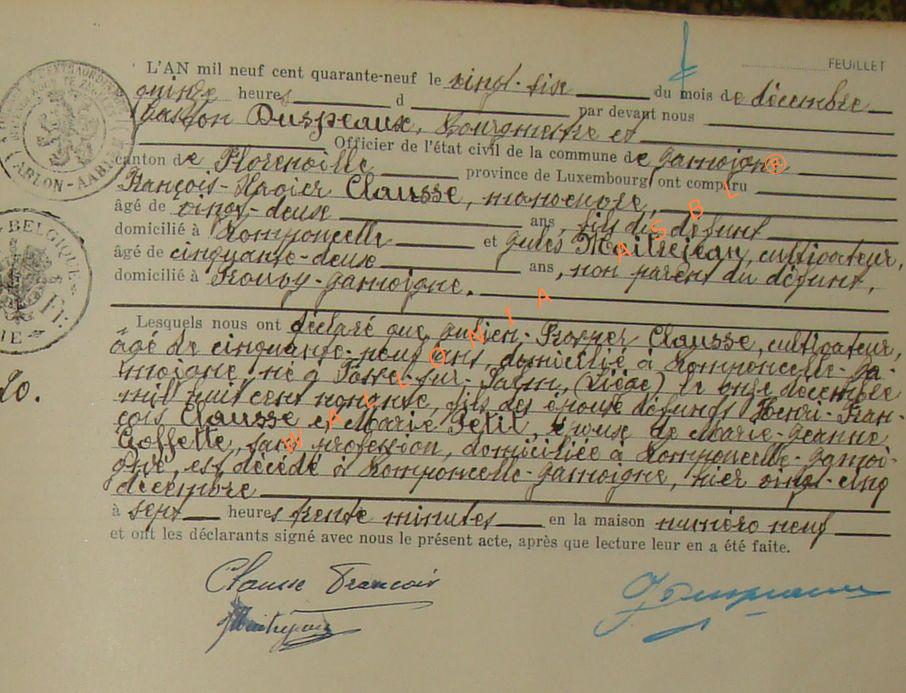 FEUILLET
L'AN mil neuf cent quarante-neuf le vingt-six du mois de décembre
quinze heures d par devant nous
Gaston Duspeaux, Bourgmestre et
Officier de l'état civil de la commune de Jamoigne
canton de Florenville province de Luxembourg ont comparu
François-Xavier Clausse, manoeuvre,
âgé de vingt-deux ans, fils du défunt
domicilié à Romponcelle et Jules Maitrejean, cultivateur,
âgé de cinquante-deux ans, non parent du défunt,
domicilié à Prouvy-Jamoigne.
Lesquels nous ont déclaré que Julien-Prosper Clausse, cultivateur,
âgé de cinquante-neuf ans, domicilié à Romponcelle-Ja-
moigne né à Fosse-sur-Salm, (Liège) le onze décembre
mil huit cent nonante, fils des époux défunts Henri-Fran-
çois Clausse et Marie Petit, époux de Marie-Jeanne
Goffette, sans profession, domiciliée à Romponcelle-Jamoi-
gne, est décédé à Romponcelle-Jamoigne, hier vingt-cinq
décembre
à sept heures trente minutes en la maison numéro neuf
et ont les déclarants signé avec nous le présent acte, après que lecture leur en a été faite.
Clausse François
JMaitrejean
WALLONIA ASBL ®
ARLON-AARLEN
BELGIQUE
Fr.
20.